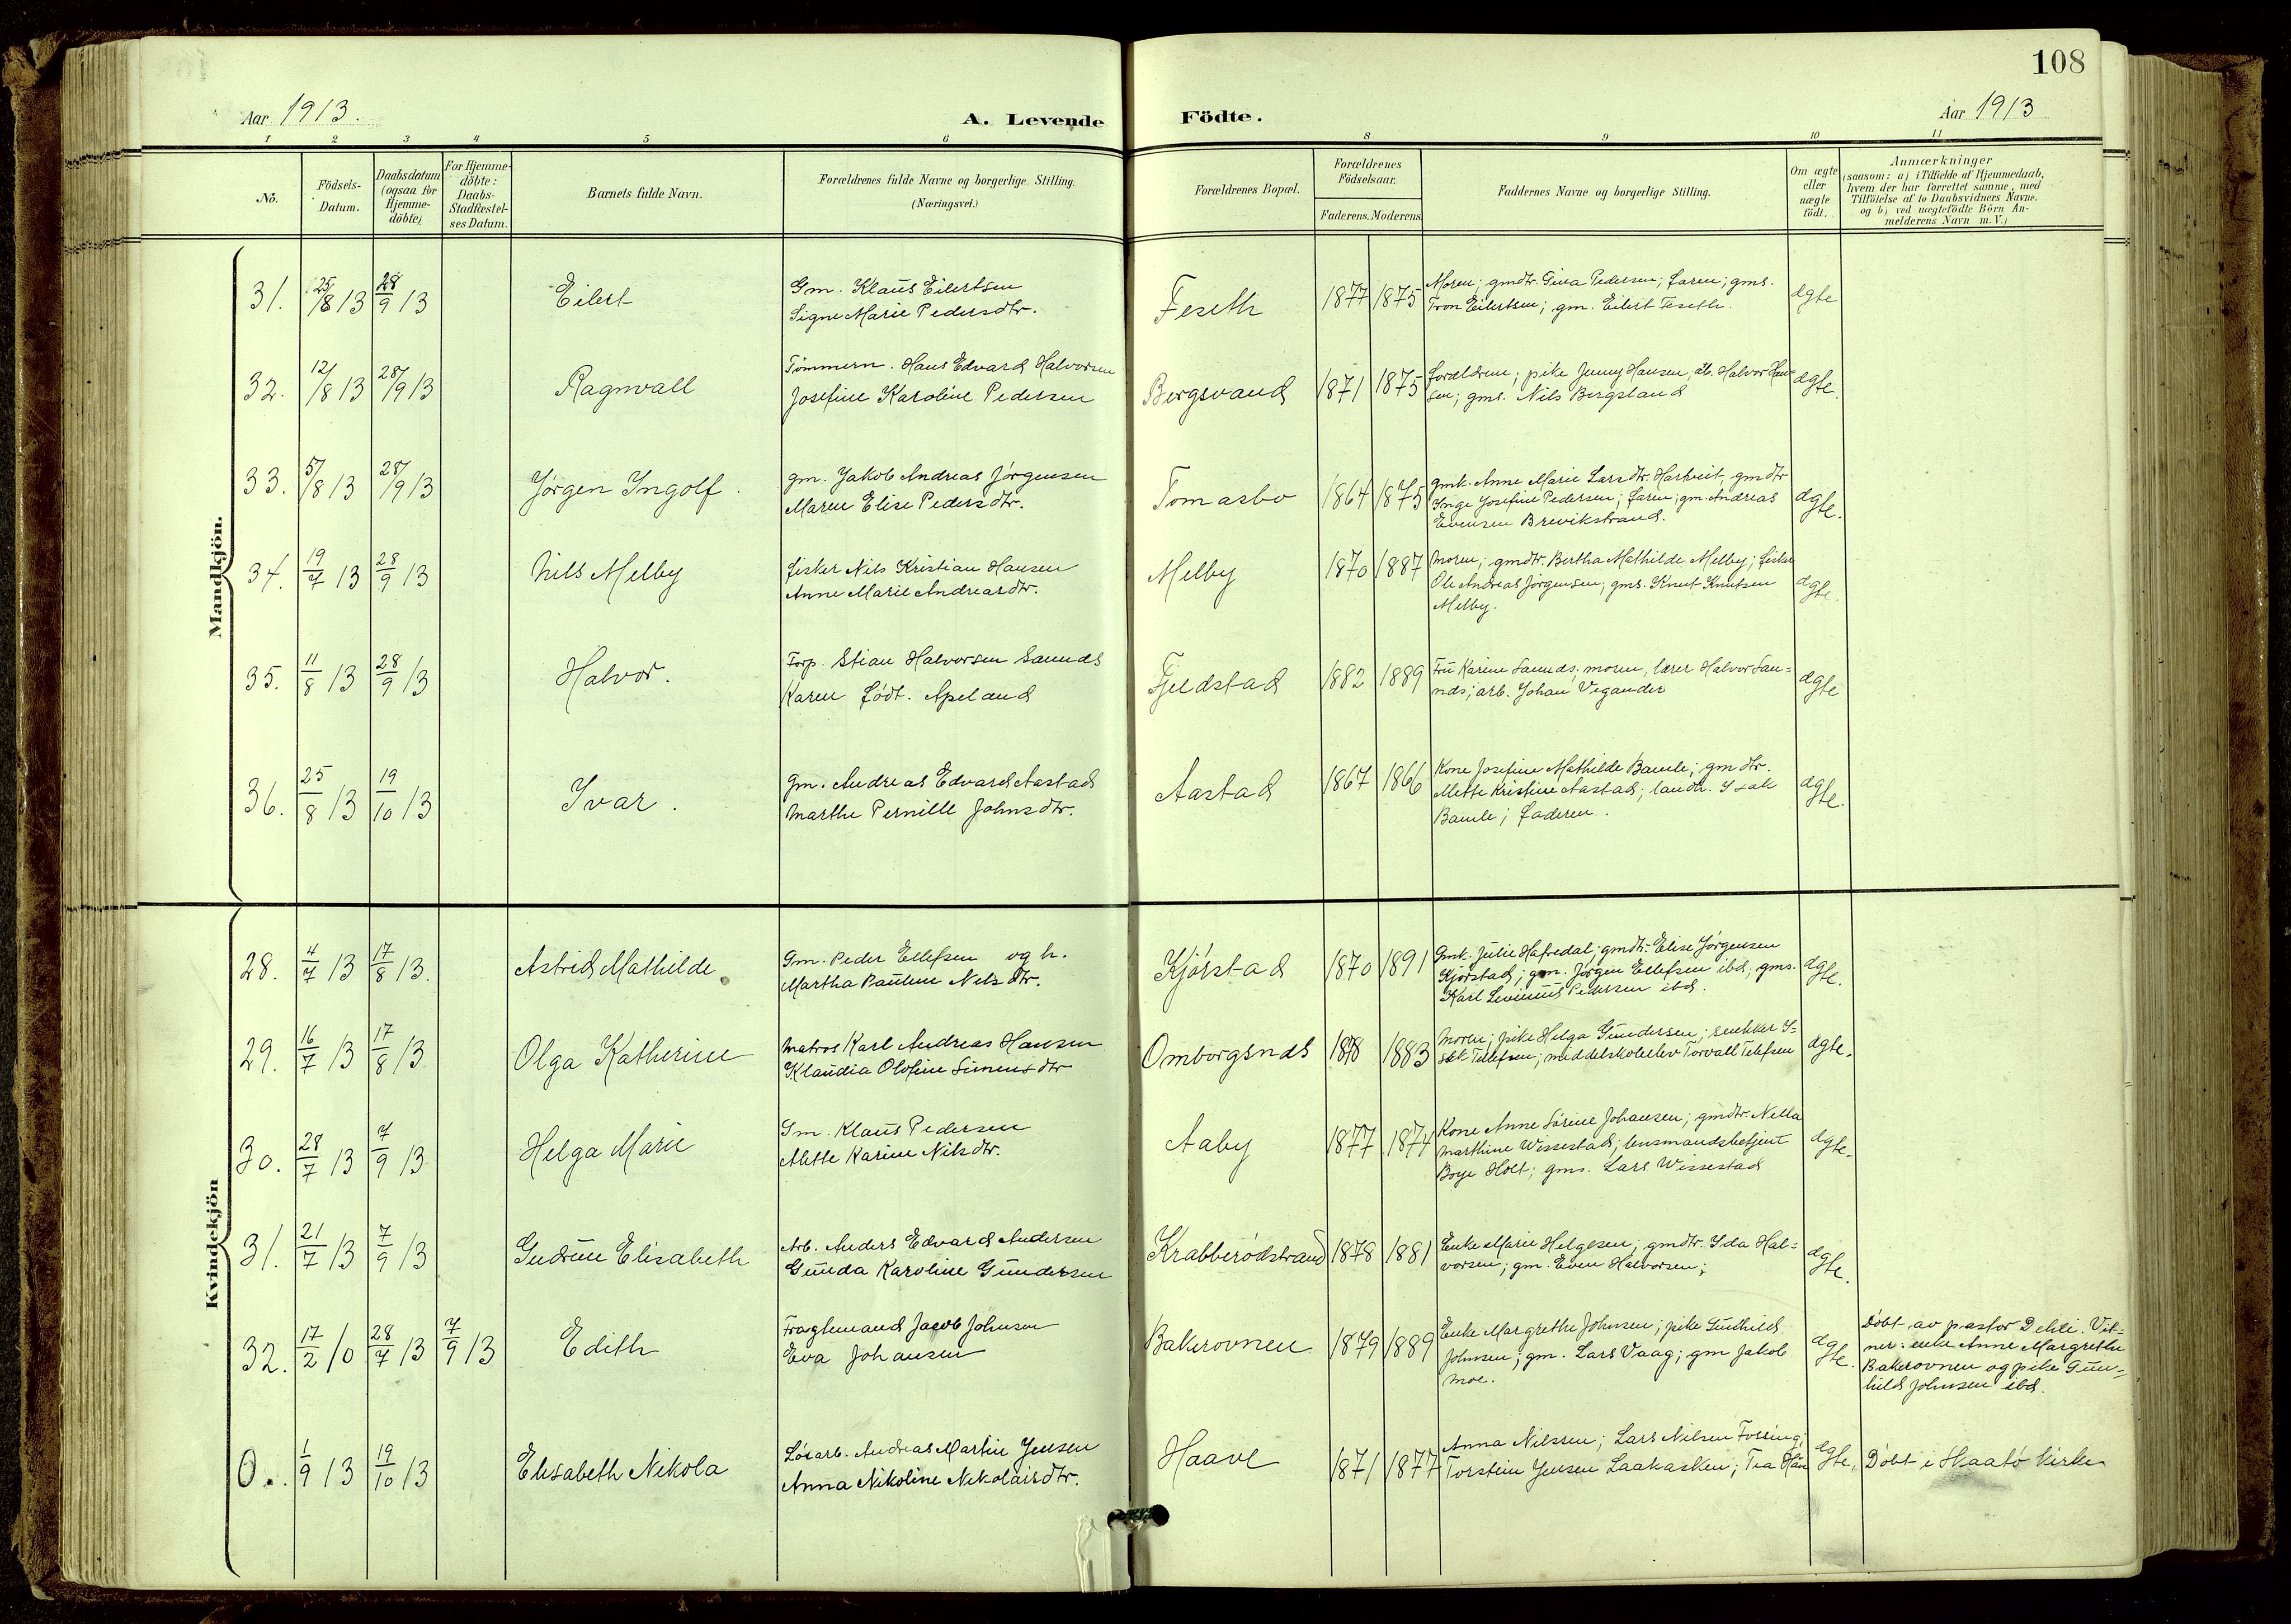 108
Aar 1913.
A. Levende Födte.
Aar 1913
1 2 3 4 5 6 8 9 10 11
No.
Födsels-
Datum.
Daabsdatum
(ogsaa for
Hjemme-
döbte)
For Hjemme-
döbte:
Daabs-
Stadfæstel-
ses Datum.
Barnets fulde Navn.
Forældrenes fulde Navne og borgerlige Stilling.
(Næringsvei.)
Forældrenes Bopæl.
Forældrenes
Födselsaar.
Faderens. Moderens
Faddernes Navne og borgerlige Stilling.
Om ægte
eller
uægte
födt.
Anmærkninger
(saasom: a) i Tilfælde af Hjemmedaab,
hvem der har forrettet samme, med
Tilföielse af to Daabsvidners Navne.
og b) ved uægtefödte Börn An-
melderens Navn m. V.)
Mandkjön.
31. 25/8 13 28/9 13 Eilert
Gm. Klaus Eilertsen
Signe Marie Pedersdtr.
Feseth 1877 1875
Moren; gmdtr. Gina Pedersen; faren; gms.
Tron Eilertsen; gm. Eilert Feseth.
ægte
32. 12/8 13 28/9 13 Ragnvall
Tømmerm. Hans Edvard Halvorsen
Josefine Karoline Pedersen
Bergsvand 1871 1875
forældrene; pike Jenny Hansen, arb. Halvor Han-
sen; gms. Nils Bergsland
ægte.
33. 5/8 13 28/9 13 Jørgen Ingolf.
gm. Jakob Andreas Jørgensen
Maren Elise Pedersdtr.
Tomasbo 1864 1875
gmk. Anne Marie Larsdtr. Hartveit, gmdtr
Inge Josefine Pedersen; faren; gm. Andreas
Evensen Brevikstrand.
ægte.
34. 19/7 13 28/9 13 Nils Melby
fisker Nils Kristian Hansen
Anne Marie Andreasdtr.
Melby 1870 1887
Moren; gmdtr. Bertha Mathilde Melby; fisker
Ole Andreas Jørgensen; gms. Knut Knutsen
Melby.
ægte.
35. 11/8 13 28/9 13 Halvor.
Forp. Stian Halvorsen Sannds
Karen født. Apeland
Fjeldstad 1882 1889
Fru Karine Sannds; moren, lærer Halvor San-
nds; arb. Johan Vegander
ægte
36. 25/8 13 19/10 13 Ivar.
gm. Andreas Edvard Aastad
Marthe Pernille Johnsdtr.
Aastad 1867 1866
Kone Josefine Mathilde Bamle; gmdtr.
Mette Kristine Aastad; landh. Isak
Bamle; faderen.
ægte.
Kvindekjön
28. 4/7 13 17/8 13. Astrid Mathilde
Gm. Peder Ellefsen og h.
Martha Pauline Nilsdtr.
Kjørstad 1870 1891
Gmk. Julie Hafredal; gmdtr. Elise Jørgensen
Kjørstad; gm. Jørgen Ellefsen ibd; gms.
Karl Pedersen ibd.
ægte.
29. 16/7 13 17/8 13 Olga Katherine
Matros Karl Andreas Hansen
Klaudia Olofine Simensdtr
Omborgsnds 1878 1883
Moren; pike Helga Gundersen; snekker I-
sak Tellefsen; middelskoleelev Torvall Telefsen
ægte.
30. 28/7 13 7/9 13 Helga Marie
Gm. Klaus Pedersen
Alette Karine Nilsdtr.
Aaby 1877 1874
Kone Anne Sørine Johansen; gmdtr. Nella
Marthine Wissestad; lensmandsbetjent
Boye Holt; gms. Lars Wissestad
ægte.
31. 21/7 13 7/9 13 Gudrun Elisabeth
Arb. Anders Edvard Andersen
Gunda Karoline Gundersen
Krabberødstrand 1878 1881
Enke Marie Helgesen; gmdtr. Ida Hal-
vorsen; gm. Even Halvorsen;
ægte.
32. 17/2 10 28/7 13 7/9 13 Edith
Fragtemand Jacob Johnsen
Eva Johansen
Bakerovnen 1879 1889
Enke Margrethe Johnsen; pike Gundhild
Johnsen; gm. Lars Vaag; gm Jakob
Moe.
ægte.
Døbt av pastor Dehli. Vit-
ner: enke Anne Margrethe
Bakerovnen og pike Gun-
hild Johnsen ibd.
0. 1/9 13 19/10 13 Elisabeth Nikola
Løsarb. Andreas Martin Jensen
Anna Nikoline Nikolaisdtr.
Haave 1871 1877
Anna Nilssen; Lars Nilsen Fossing;
Torstein Jensen Laakasken; Tea
ægte.
Døbt i Skaatø kirke